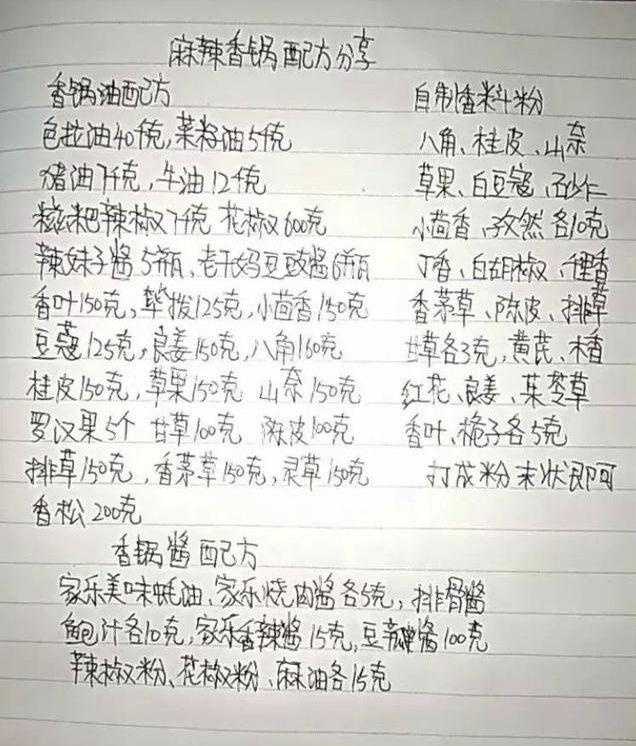 麻辣香锅配方分享
香锅油配方
包拉油40千克,菜籽油5千克
猪油7千克,牛油12千克
糍粑辣椒7千克 花椒600克
辣妹子酱5瓶、老干妈豆豉酱6瓶
香叶150克,荜拨125克,小茴香150克
豆蔻125克,良姜150克,八角160克
桂皮150克,草果150克 山奈150克
罗汉果5个 甘草100克 陈皮100克
排草150克,香茅草150克,灵草150克
香松200克
自制香料粉
八角、桂皮、山奈
草果、白豆蔻、砂仁
小茴香、孜然各10克
丁香、白胡椒、香
香茅草、陈皮、排草
甘草各3克,黄芪、木香
红花、良姜、草
香叶、栀子各5克
打成粉末状即可
香锅酱配方
家乐美味蚝油、家乐烧肉酱各5克,排骨酱
鲍汁各10克,家乐香辣酱15克,豆瓣酱100克
辣椒粉、花椒粉、麻油各15克